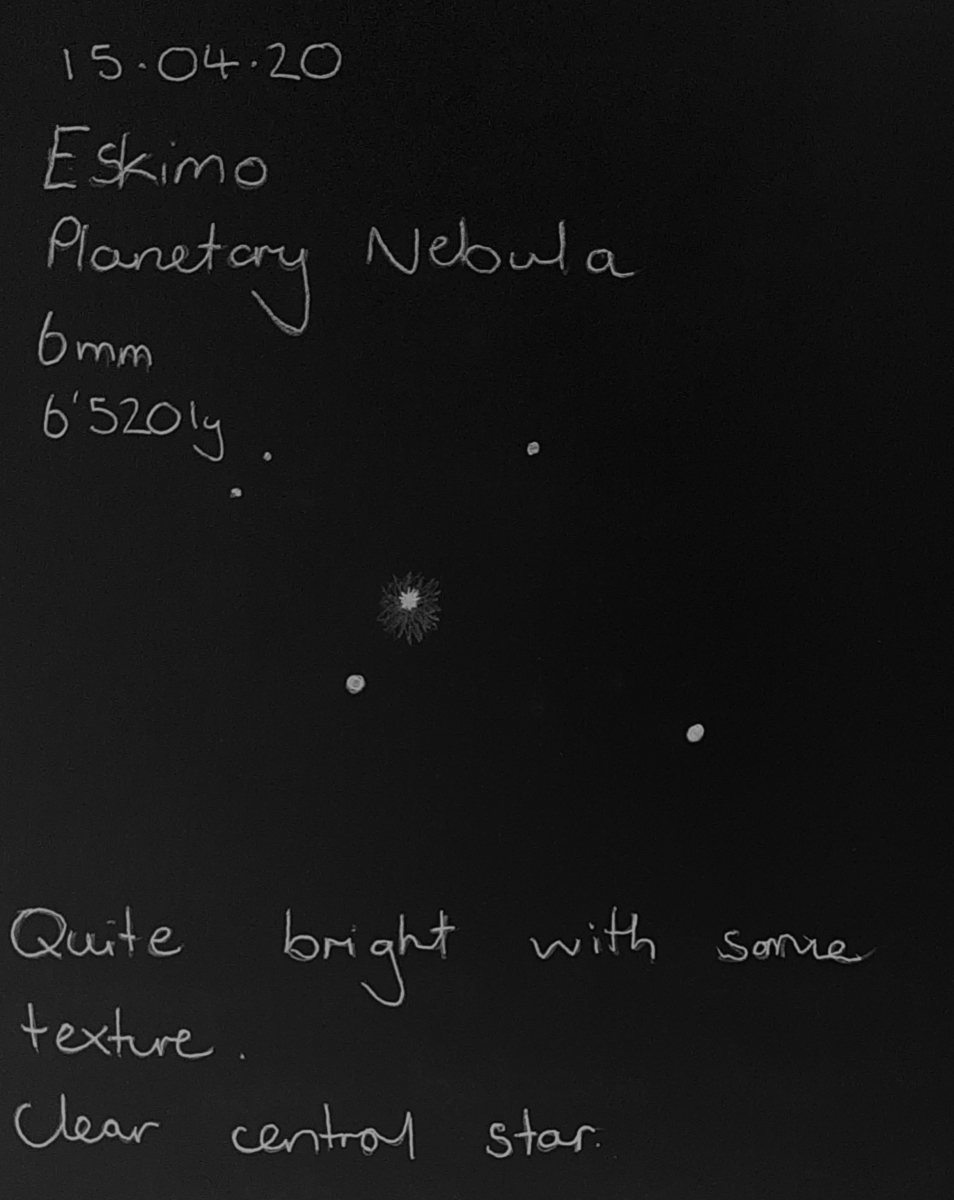 15.04.20
Eskimo
Planetary Nebula
6mm
6'520ly
Quite bright with some
texture.
Clear central star.